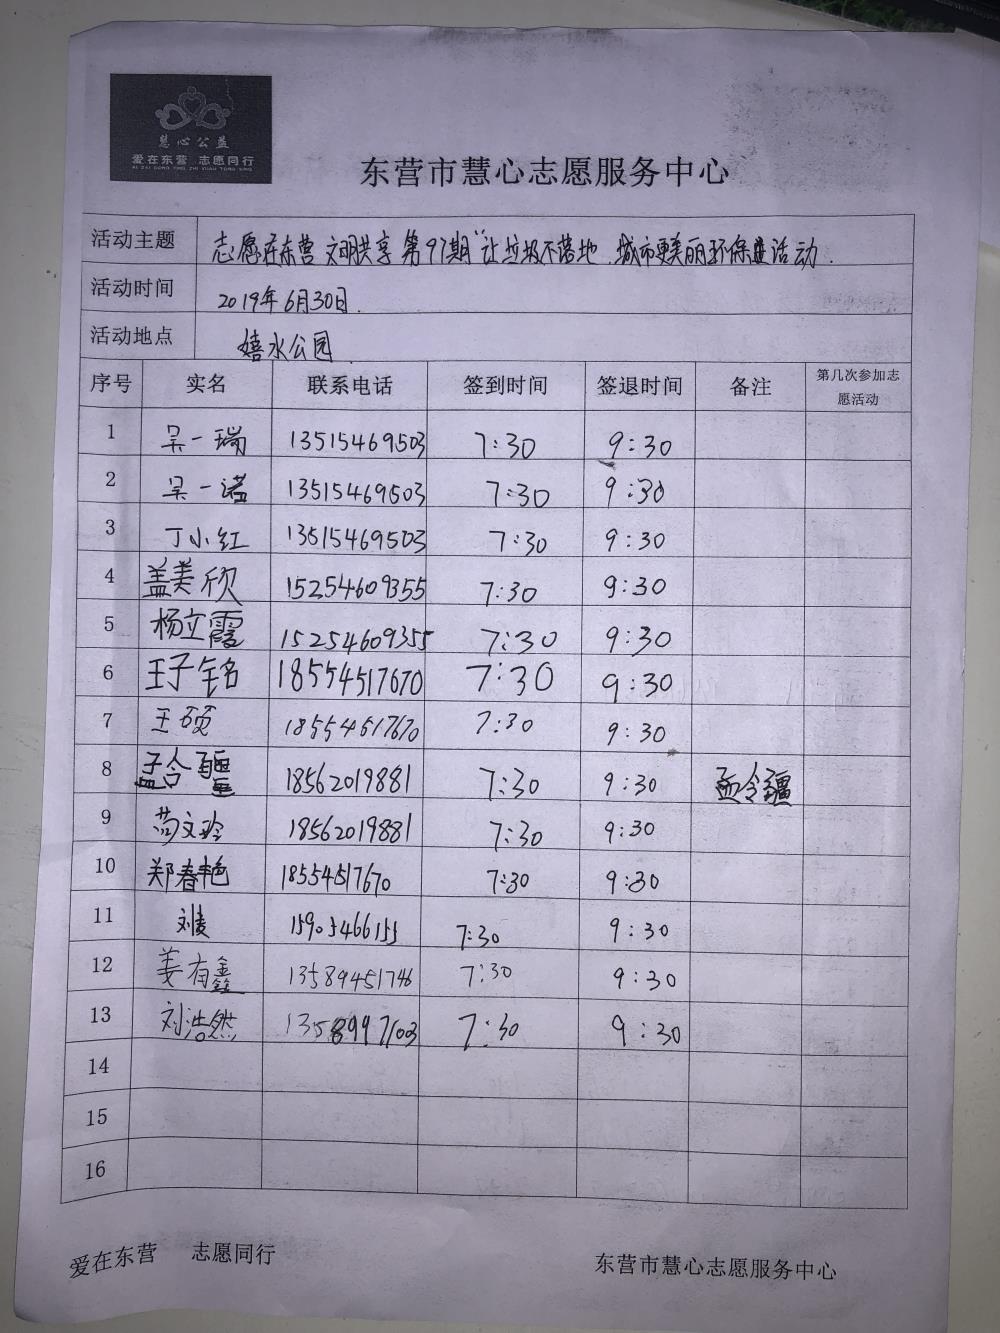 慧心公益
爱在东营 志愿同行
AI ZAI DONG YING ZHI YUAN TONG XING
东营市慧心志愿服务中心
活动主题 志愿在东营 文明共享 第97期"让垃圾不落地 城市更美丽环保 活动.
活动时间 2019年6月30日.
活动地点 嬉水公园
序号 实名 联系电话 签到时间 签退时间 备注 第几次参加志
愿活动
1 吴一瑞 13515469503 7:30 9:30
2 吴一诺 13515469503 7:30 9:30
3 丁小红 13515469503 7:30 9:30
4 盖美欣 15254609355 7:30 9:30
5 杨立霞 15254609355 7:30 9:30
6 王子铭 18554517670 7:30 9:30
7 王硕 18554517670 7:30 9:30
8 孟令疆 18562019881 7:30 9:30 孟令疆
9 文玲 18562019881 7:30 9:30
10 郑春艳 18554517670 7:30 9:30
11 刘 15905466155 7:30 9:30
12 姜有鑫 13589451746 7:30 9:30
13 刘浩然 13589997103 7:30 9:30
14
15
16
爱在东营 志愿同行 东营市慧心志愿服务中心